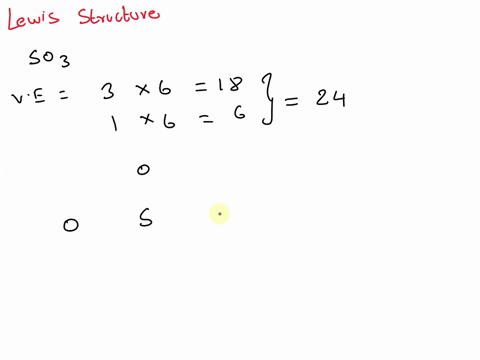 Lewis Structure
SO3
V.E = 3 × 6 = 18 } = 24
1 × 6 = 6
O
O S